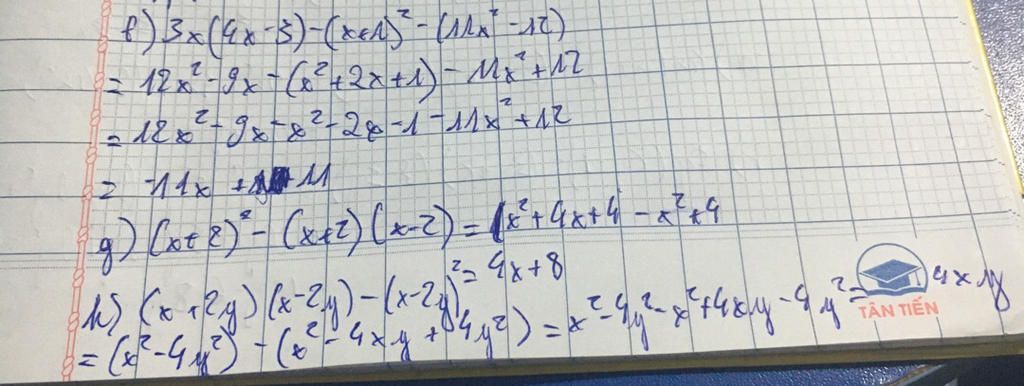 f) 3x(4x-3)-(x+1)²-(11x²-12)
= 12x²-9x-(x²+2x+1)-11x²+12
= 12x²-9x-x²-2x-1-11x²+12
= -11x + 11
g) (x+2)²-(x+2)(x-2)=(x²+4x+4-x²+4
= 4x+8
h) (x+2y)(x-2y)-(x-2y)²
= (x²-4y²)-(x²-4xy+4y²)=x²-4y²-x²+4xy-4y²= 4xy
TÂN TIẾN